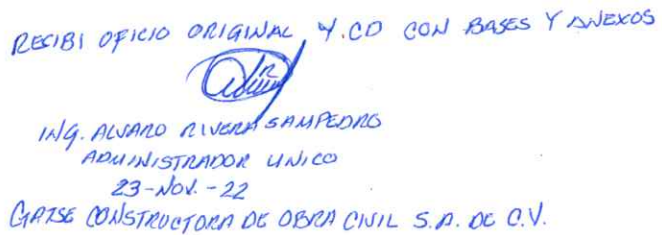 RECIBI OFICIO ORIGINAL Y CD CON BASES Y ANEXOS
ING. ALVARO RIVERA SAMPEDRO
ADMINISTRADOR UNICO
23-NOV.-22
CONSTRUCTORA DE OBRA CIVIL S.A. DE C.V.